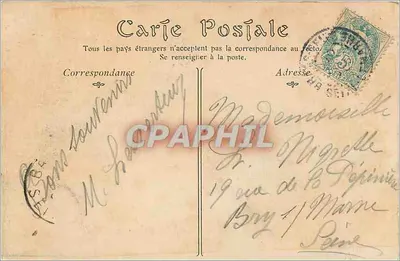 Carte Postale
Tous les pays étrangers n'acceptent pas la correspondance au recto
Se renseigner à la poste.
Correspondance
Adresse
Bons souvenirs
M.
Mademoiselle
Nigrelle
19 rue de la Pépinière
Bry s/ Marne
Seine
CPARAMA